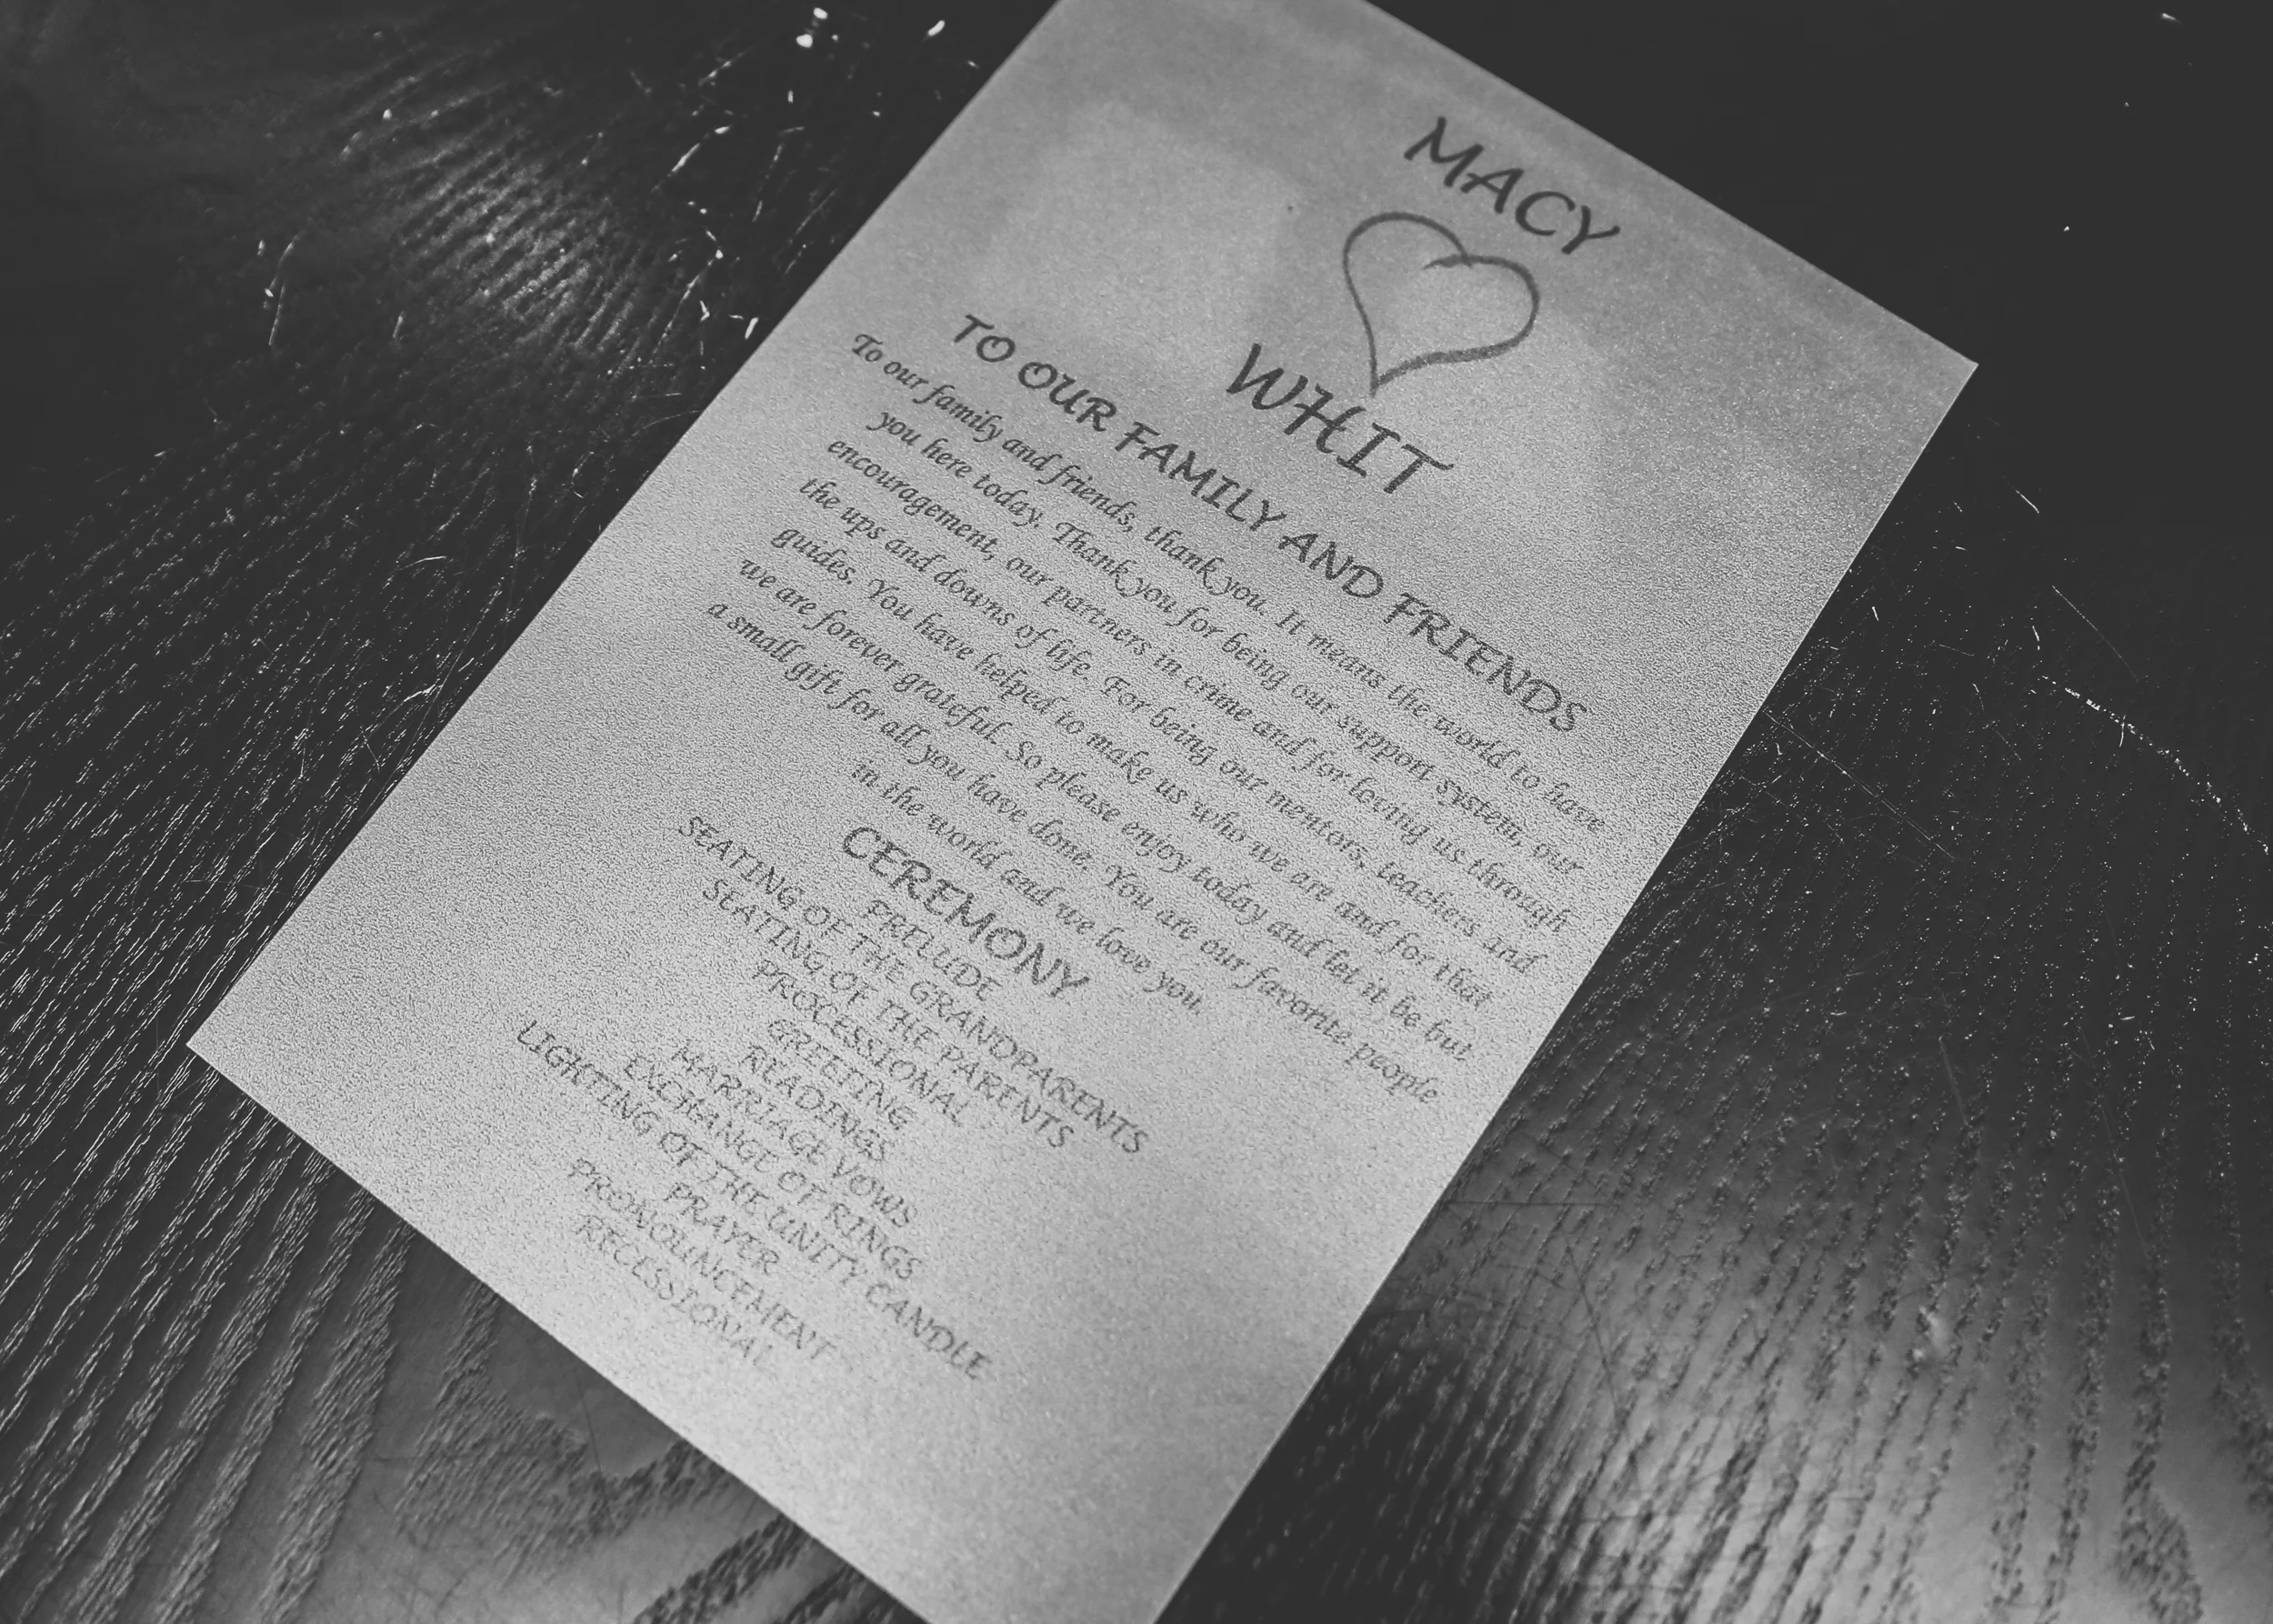 MACY
WHIT
TO OUR FAMILY AND FRIENDS
To our family and friends, thank you. It means the world to have
you here today. Thank you for being our support system, our
encouragement, our partners in crime and for loving us through
the ups and downs of life. For being our mentors, teachers and
guides. You have helped to make us who we are and for that
we are forever grateful. So please enjoy today and let it be but
a small gift for all you have done. You are our favorite people
in the world and we love you.
CEREMONY
PRELUDE
SEATING OF THE GRANDPARENTS
SEATING OF THE PARENTS
PROCESSIONAL
GREETING
READINGS
MARRIAGE VOWS
EXCHANGE OF RINGS
LIGHTING OF THE UNITY CANDLE
PRAYER
PRONOUNCEMENT
RECESSIONAL